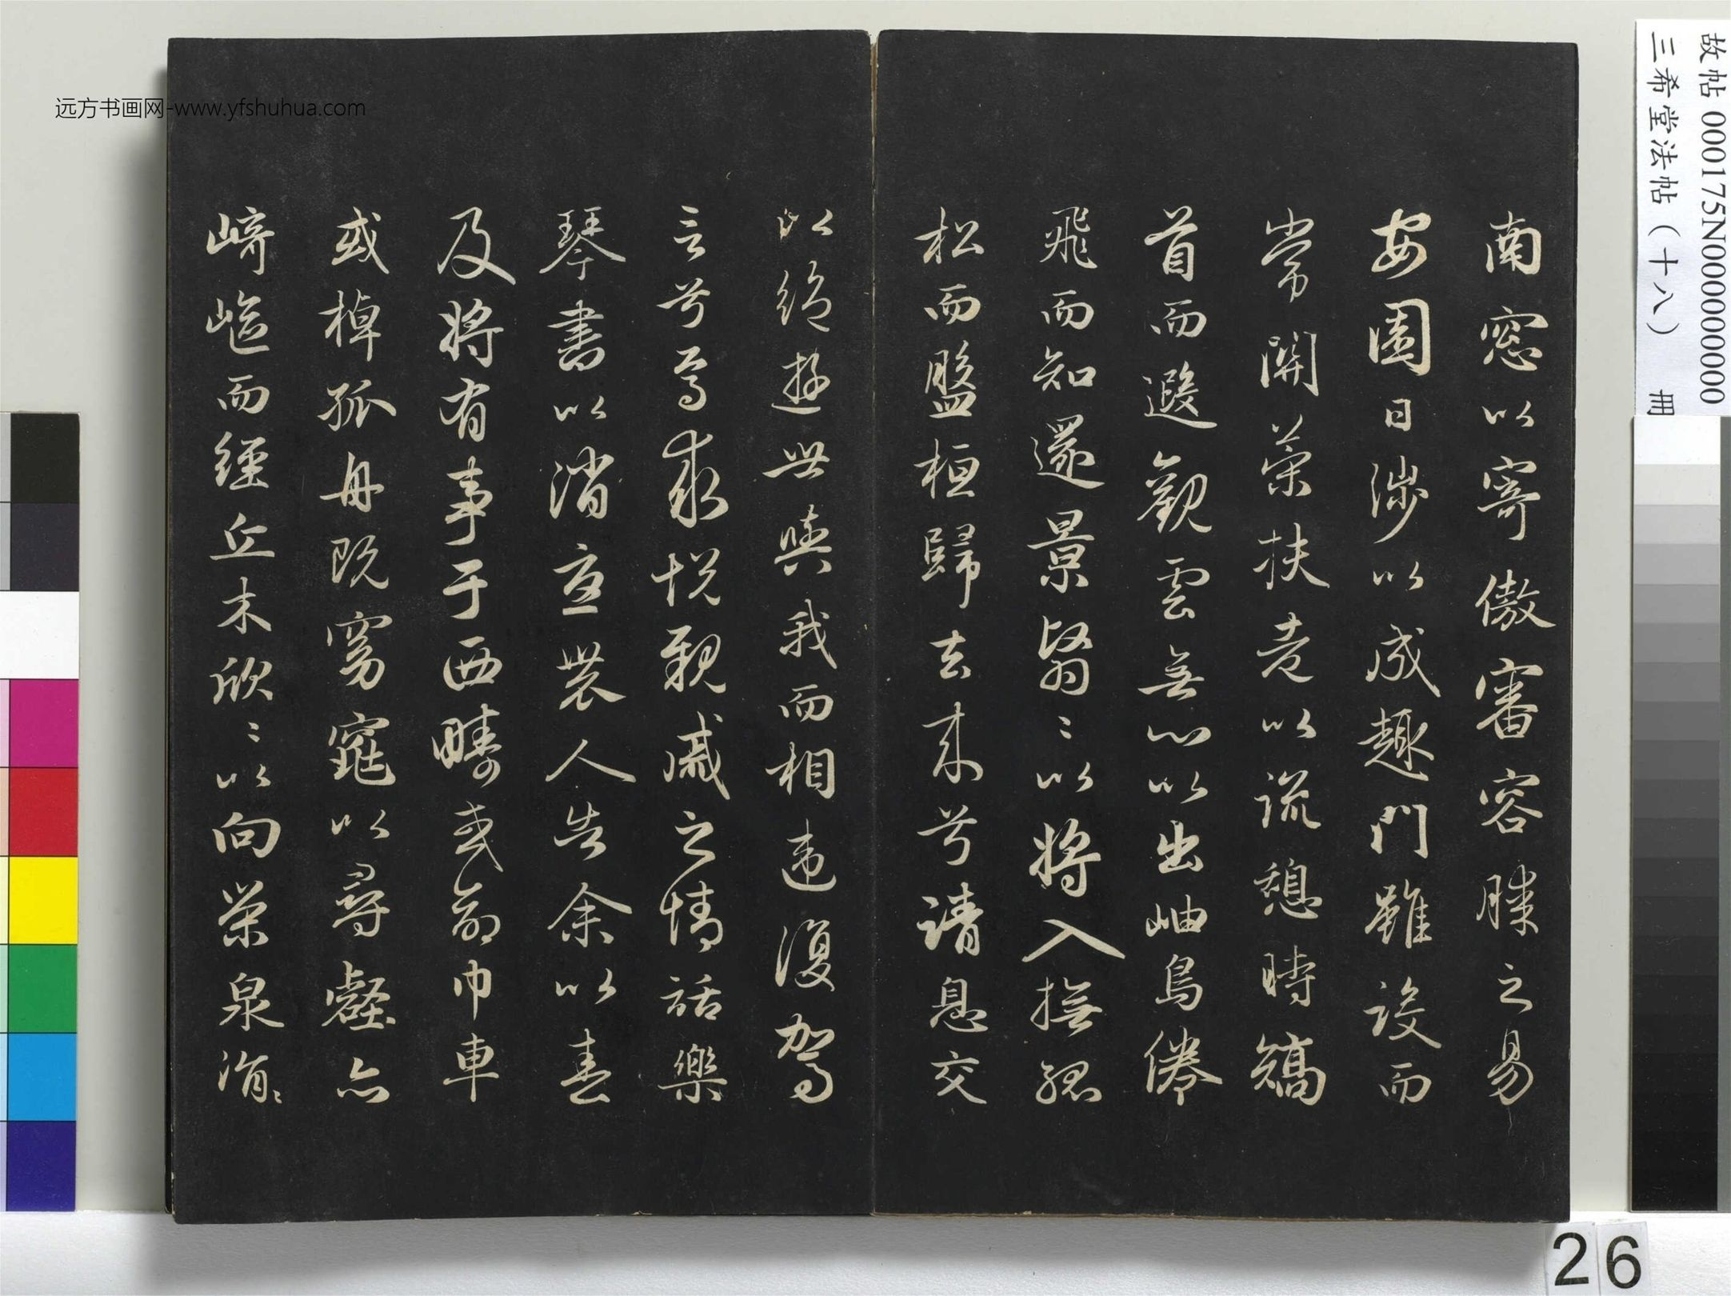 故帖 000175N000000000
三希堂法帖（十八） 冊
南窓以寄傲審容膝之易
安園日涉以成趣門雖設而
常關策扶老以流憩時矯
首而遐觀雲無心以出岫鳥倦
飛而知還景翳〻以將入撫孤
松而盤桓歸去来兮請息交
以絕遊世與我而相違復駕
言兮焉求悅親戚之情話樂
琴書以消憂農人告余以春
及將有事于西疇或命巾車
或棹孤舟既窈窕以尋壑亦
崎嶇而經丘木欣〻以向榮泉涓〻
远方书画网-www.yfshuhua.com
26